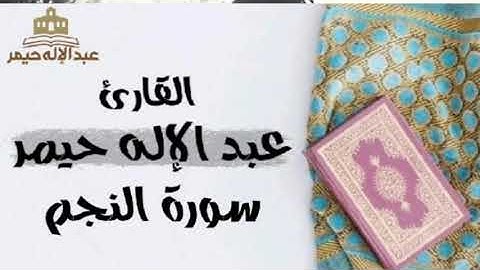 عبدالإله حيمر
القارئ
عبد الإله حيمر
سورة النجم